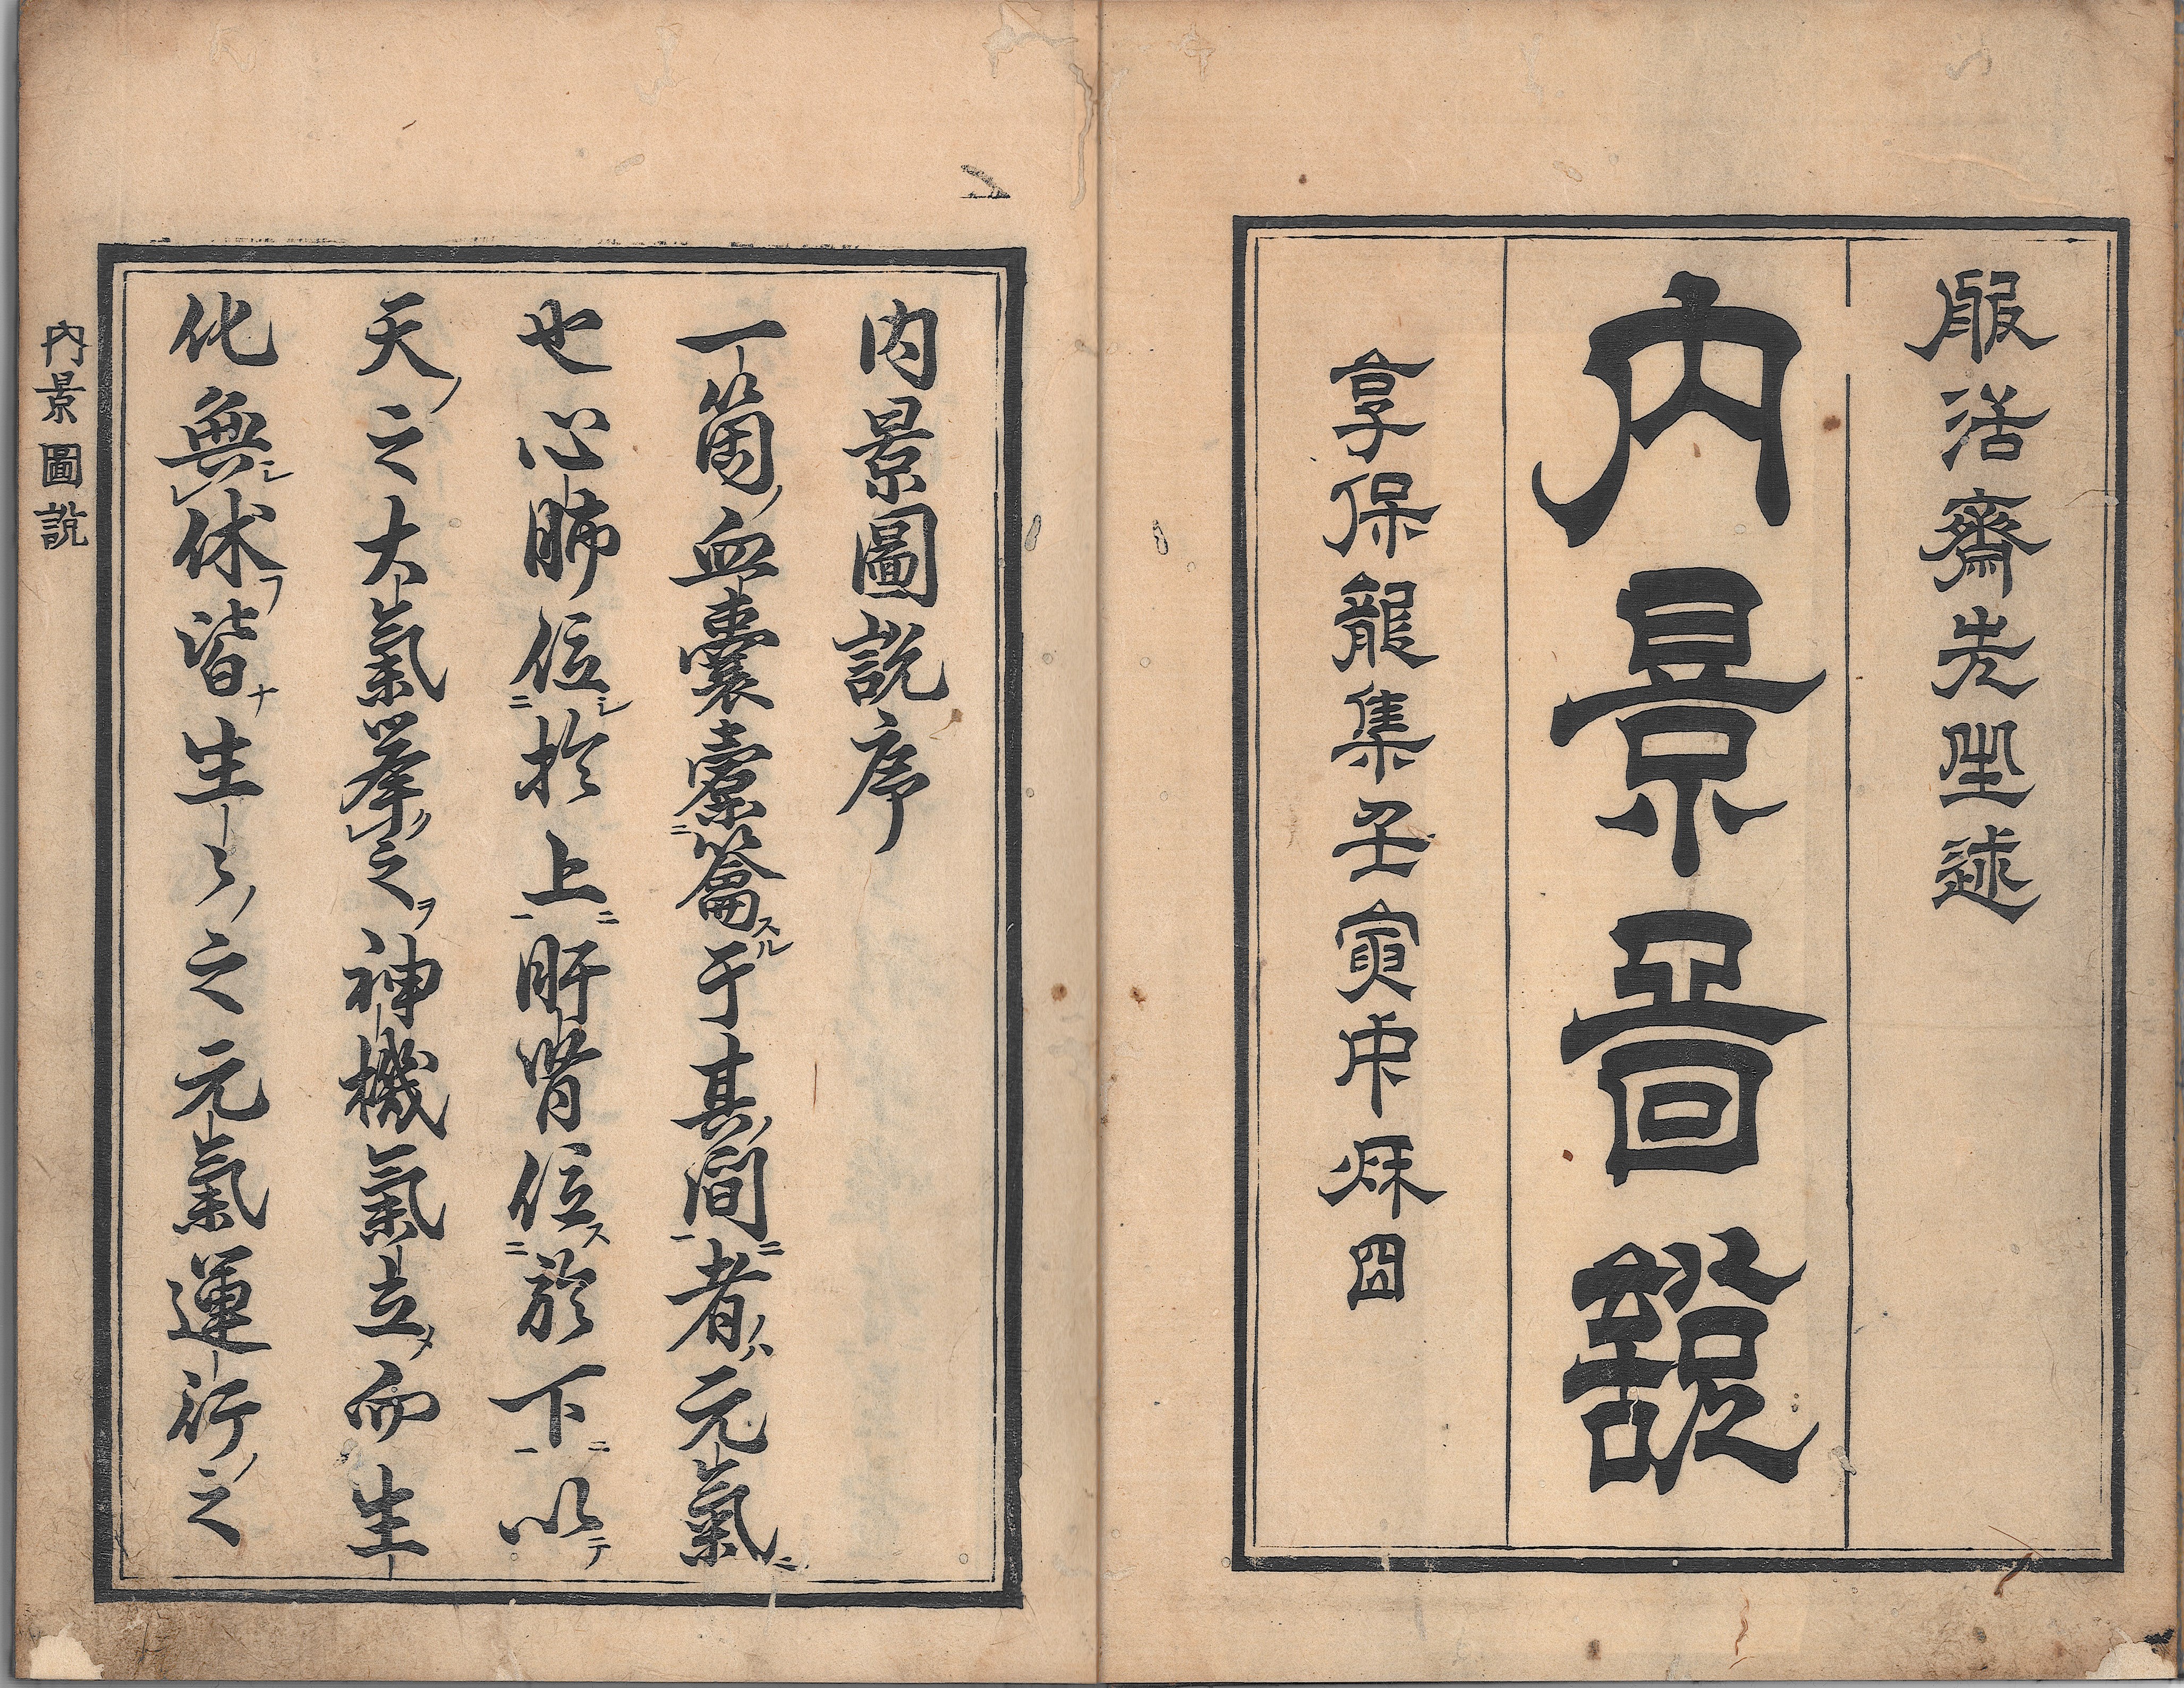 服活齋先生述
內景啚說
享保龍集壬寅中秌
内景圖說序
一箇血囊橐籥于其間者元氣
也心肺位於上肝腎位於下以
天之大氣擧之神機氣立而生
化無休皆生〻之元氣運行之
內景圖說